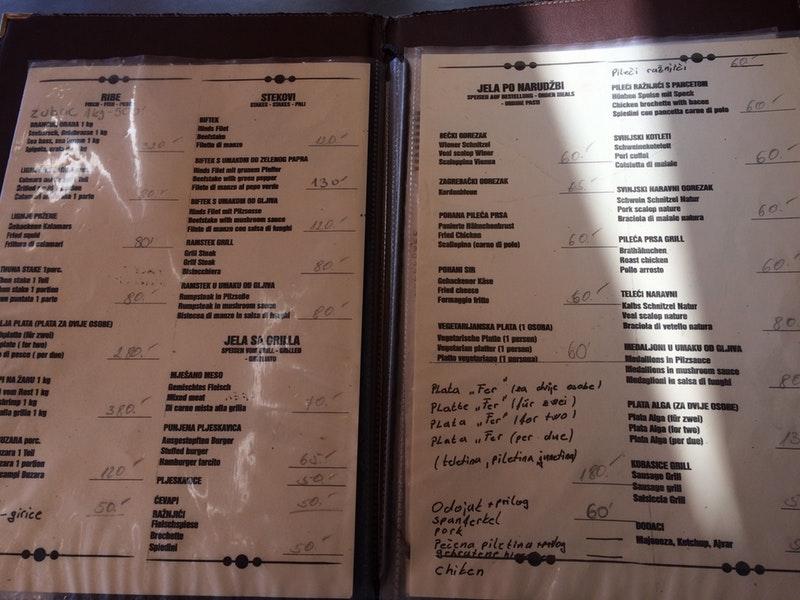 RIBE
Zubac 1kg-500'
BRANCIN, ORADA 1 kg
Seebarsch, Goldbrasse 1 kg
Sea bass, sea bream 1 kg
320.-
80.-
LIGNJE PRŽENE
Gebackene Kalamars
Fried squid
Frittura di calamari
80'
TUNA STAKE 1porc.
stake 1 Teil
stake 1 portion
puntata 1 parte
80.-
PLATA (PLATA ZA DVIJE OSOBE)
(für zwei)
(for two)
di pesce (per due)
280.-
NA ŽARU 1 kg
vom Rost 1 kg
shrimp 1 kg
alla griglia 1 kg
380.-
BUZARA porc.
Buzara 1 Teil
Buzara 1 portion
scampi Buzara
120.-
-girice
50.-
STEKOVI
STEAKS - STEAKS - PALI
BIFTEK
Rinds Filet
Beefstake
Filetto di manzo
120.-
BIFTEK S UMAKOM OD ZELENOG PAPRA
Rinds Filet mit grunem Pfeffer
Beefstake with green pepper
Filete di manzo al pepe verde
130.-
BIFTEK S UMAKOM OD GLJIVA
Rinds Filet mit Pilzsosse
Beefstake with mushroom sauce
Filete di manzo con salsa di funghi
120.-
RAMSTEK GRILL
Grill Steak
Grill Steak
Bistecchiera
80.-
RAMSTEK U UMAKU OD GLJIVA
Rumpsteak in Pilzsoße
Rumpsteak in mushroom sauce
Bistecca di manzo in salsa di funghi
80.-
JELA SA GRILLA
SPEISEN VOM GRILL - GRILLED
- GRIGLIATO
MJEŠANO MESO
Gemischtes Fleisch
Mixed meat
Di carne mista alla grilla
70.-
PUNJENA PLJESKAVICA
Ausgestopften Burger
Stuffed burger
Hamburger farcito
65.-
PLJESKAVICE
50.-
ĆEVAPI
50.-
RAŽNJIĆI
Fleischspiese
Brochette
Spiedini
50.-
JELA PO NARUDŽBI
SPEISEN AUF BESTELLUNG - ORDER MEALS
- ORDINE PASTI
BEČKI ODREZAK
Wiener Schnitzel
Veal scalop Winer
Scaloppina Vienna
60.-
ZAGREBAČKI ODREZAK
Kordonbleau
65.-
POHANA PILEĆA PRSA
Panierte Hähnchenbrust
Fried Chicken
Scallopina (carno di polo)
60.-
POHANI SIR
Gebackener Käse
Fried cheese
Formaggio fritto
60.-
VEGETARIJANSKA PLATA (1 OSOBA)
Vegetarische Platte (1 person)
Vegetarian platter (1 person)
Piatto vegetariano (1 persona)
60'
Plata „Fer" (za dvije osobe)
Platte „Fer" (für zwei)
Plata „Fer" (for two)
Plata „Fer (per due)
(teletina, piletina, junetina)
180.-
Odojak + prilog
spanferkel
pork
60'
Pečena piletina + prilog
chiken
Pileći ražnjići 60.-
PILEĆI RAŽNJIĆI S PANCETOM
Hünhen Spuise mit Speck
Chicken brochette with bacon
Spiedini con pancetta carno di polo
60.-
SVINJSKI KOTLETI
Schweinekotelett
Port cutlet
Colstotta di maiale
60.-
SVINJSKI NARAVNI ODREZAK
Schwein Schnitzel Natur
Pork scalop nature
Braciola di maiale natura
60.-
PILEĆA PRSA GRILL
Brathähnchen
Roast chicken
Pollo arrosto
60.-
TELEĆI NARAVNI
Kalbs Schnitzel Natur
Veal scalop nature
Braciola di vetello natura
80
MEDALJONI U UMAKU OD GLJIVA
Medaillions in Pilzsauce
Medallions in mushroom sauce
Medaglioni in salsa di funghi
80
PLATA ALGA (ZA DVIJE OSOBE)
Plata Alga (für zwei)
Plata Alga (for two)
Plata Alga (per due)
KOBASICE GRILL
Sausage Grill
Sausage grill
Salsiccia Grill
DODACI
Majoneza, Ketchup, Ajvar